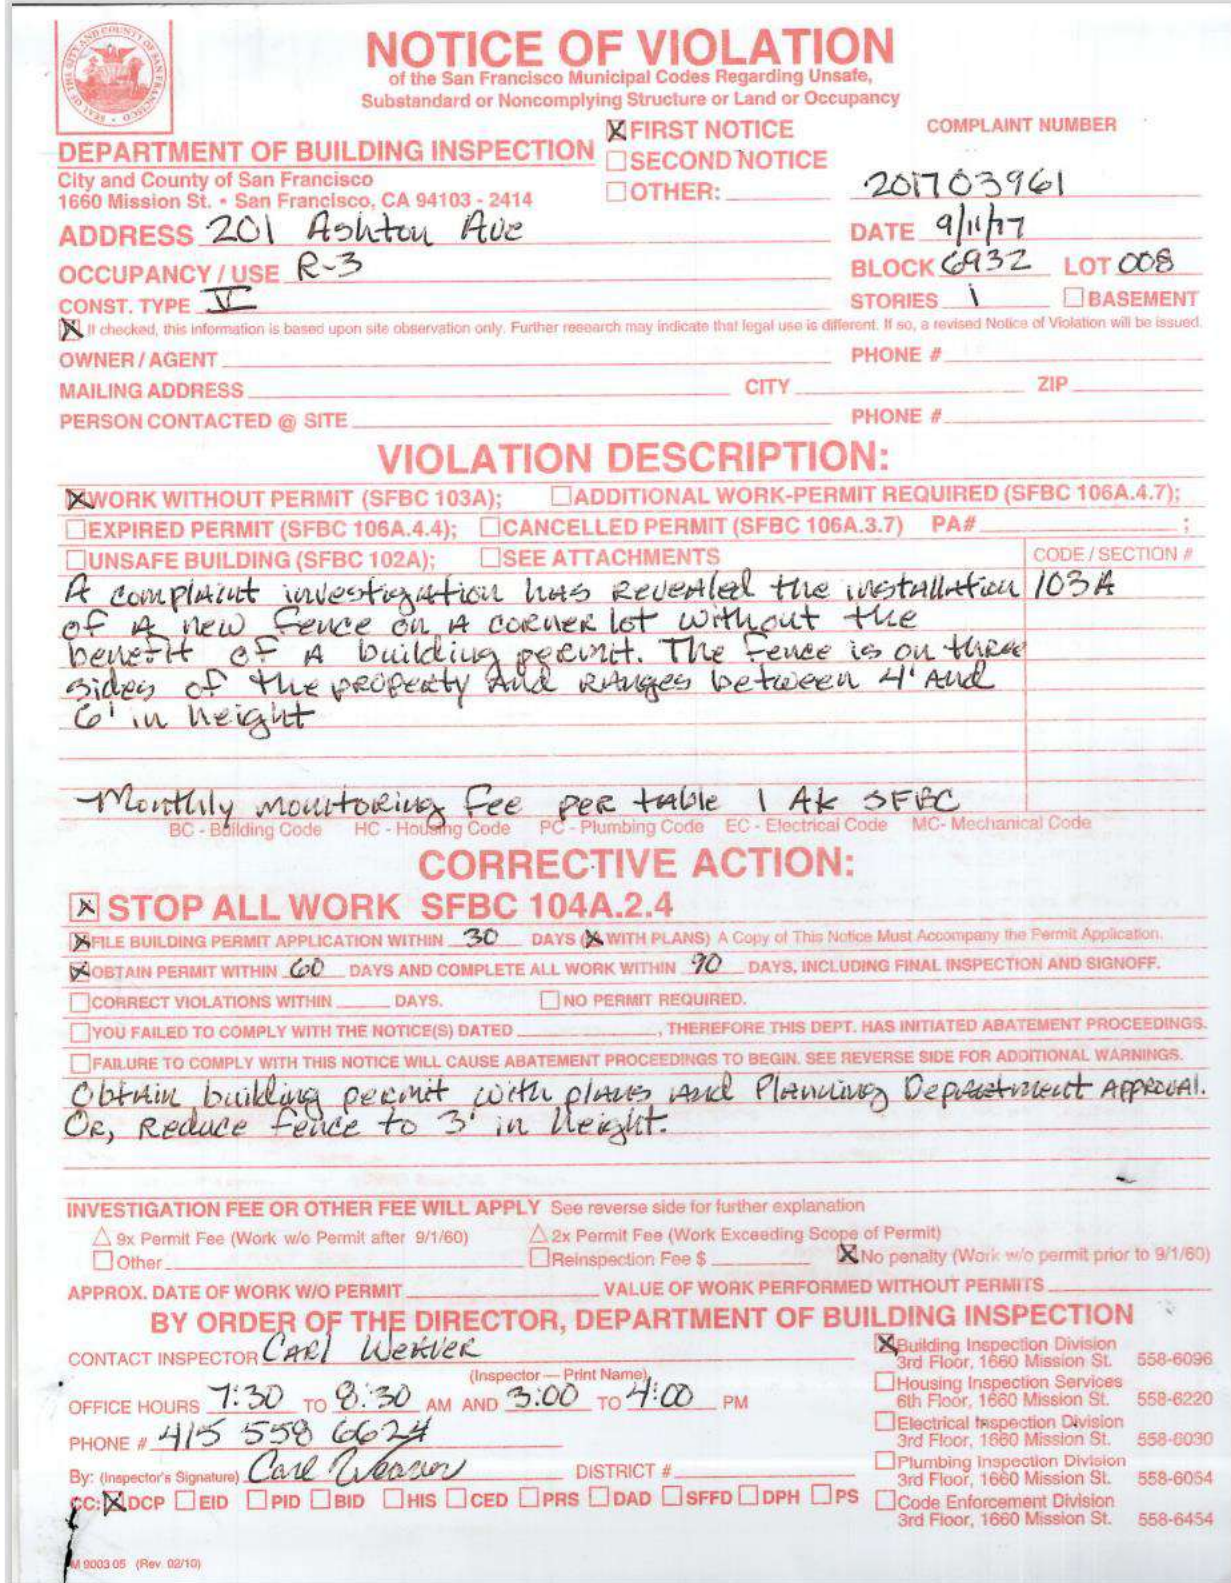 NOTICE OF VIOLATION
of the San Francisco Municipal Codes Regarding Unsafe,
Substandard or Noncomplying Structure or Land or Occupancy
DEPARTMENT OF BUILDING INSPECTION
City and County of San Francisco
1660 Mission St. • San Francisco, CA 94103 - 2414
X FIRST NOTICE
SECOND NOTICE
OTHER:
COMPLAINT NUMBER
201703961
ADDRESS 201 Ashton Ave DATE 9/11/17
OCCUPANCY / USE R-3 BLOCK 6932 LOT 008
CONST. TYPE V STORIES 1 BASEMENT
X If checked, this information is based upon site observation only. Further research may indicate that legal use is different. If so, a revised Notice of Violation will be issued.
OWNER / AGENT PHONE #
MAILING ADDRESS CITY ZIP
PERSON CONTACTED @ SITE PHONE #
VIOLATION DESCRIPTION:
X WORK WITHOUT PERMIT (SFBC 103A); ADDITIONAL WORK-PERMIT REQUIRED (SFBC 106A.4.7);
EXPIRED PERMIT (SFBC 106A.4.4); CANCELLED PERMIT (SFBC 106A.3.7) PA# ;
UNSAFE BUILDING (SFBC 102A); SEE ATTACHMENTS CODE / SECTION #
A complaint investigation has revealed the installation 103A
of a new fence on a corner lot without the
benefit of a building permit. The fence is on three
sides of the property and ranges between 4' and
6' in height
Monthly monitoring fee per table 1 AK SFBC
BC - Building Code HC - Housing Code PC - Plumbing Code EC - Electrical Code MC- Mechanical Code
CORRECTIVE ACTION:
X STOP ALL WORK SFBC 104A.2.4
X FILE BUILDING PERMIT APPLICATION WITHIN 30 DAYS (X WITH PLANS) A Copy of This Notice Must Accompany the Permit Application.
X OBTAIN PERMIT WITHIN 60 DAYS AND COMPLETE ALL WORK WITHIN 90 DAYS, INCLUDING FINAL INSPECTION AND SIGNOFF.
CORRECT VIOLATIONS WITHIN DAYS. NO PERMIT REQUIRED.
YOU FAILED TO COMPLY WITH THE NOTICE(S) DATED , THEREFORE THIS DEPT. HAS INITIATED ABATEMENT PROCEEDINGS.
FAILURE TO COMPLY WITH THIS NOTICE WILL CAUSE ABATEMENT PROCEEDINGS TO BEGIN. SEE REVERSE SIDE FOR ADDITIONAL WARNINGS.
Obtain building permit with plans and Planning Department Approval.
Or, Reduce fence to 3' in height.
INVESTIGATION FEE OR OTHER FEE WILL APPLY See reverse side for further explanation
9x Permit Fee (Work w/o Permit after 9/1/60) 2x Permit Fee (Work Exceeding Scope of Permit)
Other Reinspection Fee $ X No penalty (Work w/o permit prior to 9/1/60)
APPROX. DATE OF WORK W/O PERMIT VALUE OF WORK PERFORMED WITHOUT PERMITS
BY ORDER OF THE DIRECTOR, DEPARTMENT OF BUILDING INSPECTION
CONTACT INSPECTOR Carl Weaver
(Inspector — Print Name)
OFFICE HOURS 7:30 TO 8:30 AM AND 3:00 TO 4:00 PM
PHONE # 415 558 6624
By: (Inspector's Signature) Carl Weaver DISTRICT #
CC: X DCP EID PID BID HIS CED PRS DAD SFFD DPH PS
X Building Inspection Division
3rd Floor, 1660 Mission St. 558-6096
Housing Inspection Services
6th Floor, 1660 Mission St. 558-6220
Electrical Inspection Division
3rd Floor, 1660 Mission St. 558-6030
Plumbing Inspection Division
3rd Floor, 1660 Mission St. 558-6054
Code Enforcement Division
3rd Floor, 1660 Mission St. 558-6454
M 9003 05 (Rev. 02/10)